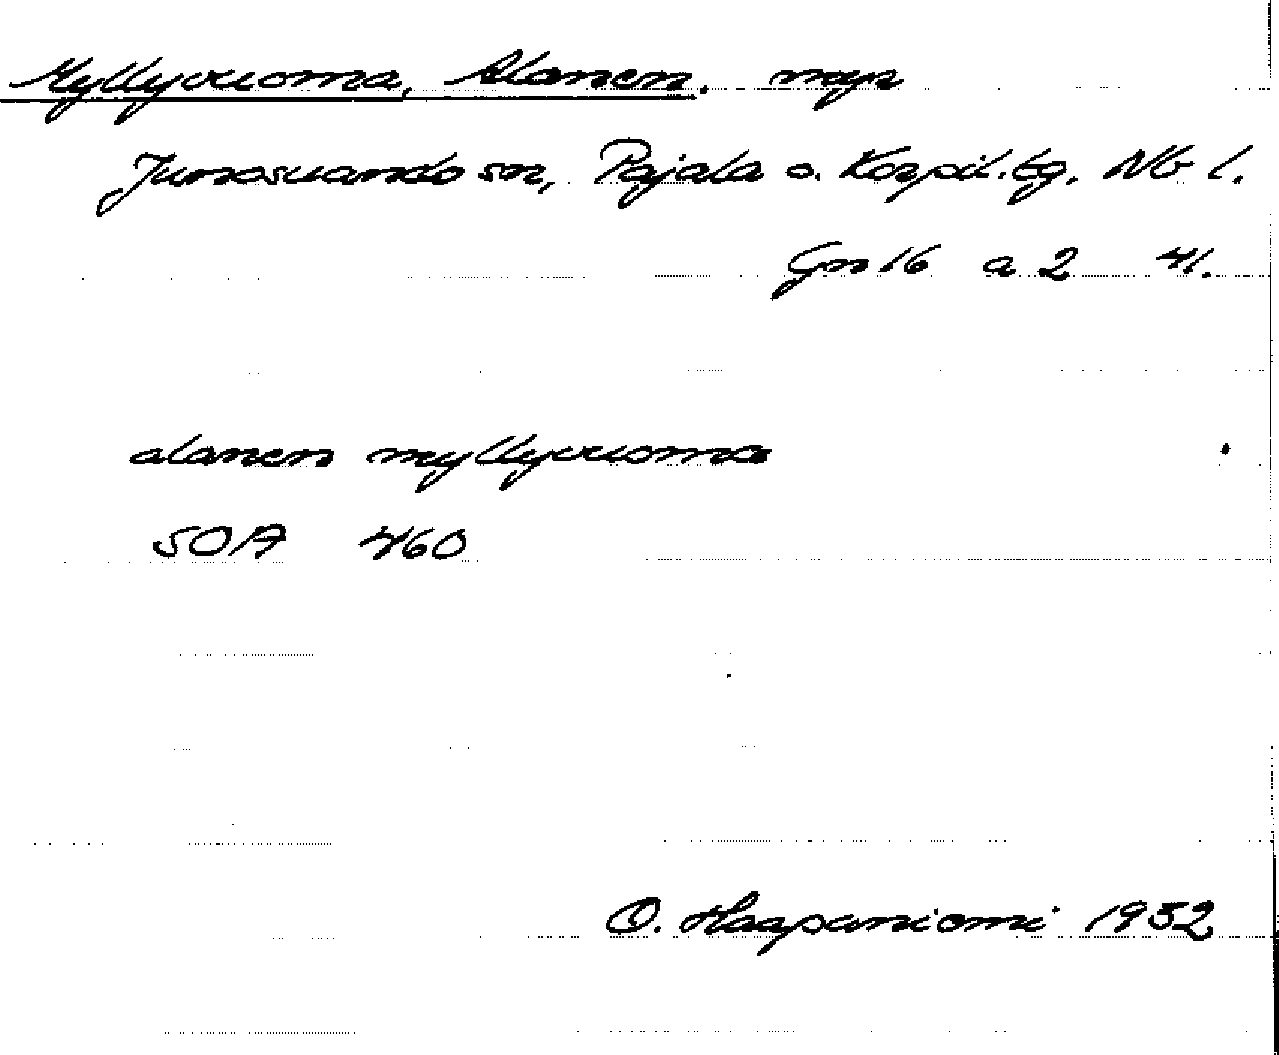 Myllyvuoma, Alanen. myr
Junosuando sn, Pajala o. Korpil. tg. Nb l.
Gn 16 a 2 41.
alanen myllyvuoma
SOA 460
O. Haapaniemi 1932